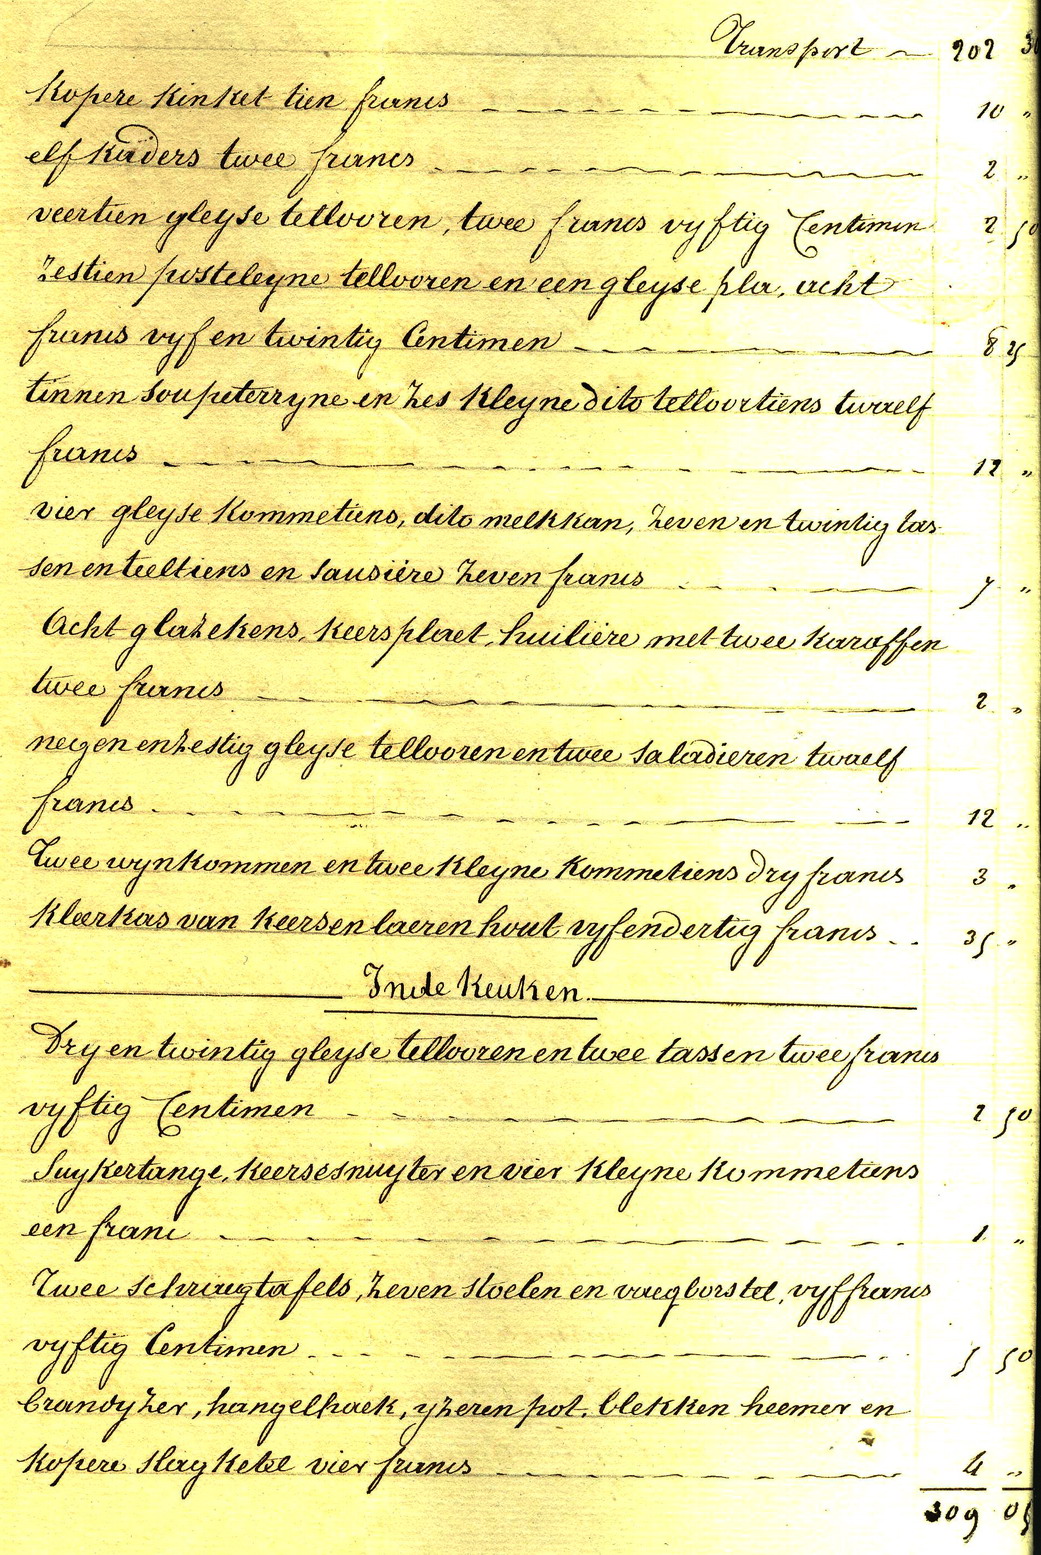 Transport 202 30
Kopere kinket tien francs 10 "
elf kaders twee francs 2 "
veertien gleyse tellooren, twee francs vyftig Centimen 2 50
Zestien posteleyne tellooren en een gleyse pla, acht
francs vyf en twintig Centimen 8 25
tinnen soupeterryne en zes kleyne dito telloortiens twaelf
francs 12 "
vier gleyse kommetiens, dito melkkan, zeven en twintig tas-
sen en teeltiens en sausière zeven francs 7 "
Acht glazekens, keersplaet, huilière met twee karaffen
twee francs 2 "
negen en zestig gleyse tellooren en twee saladieren twaelf
francs 12 "
Twee wynkommen en twee kleyne kommetiens dry francs 3 "
kleerkas van keersenlaeren hout vyfendertig francs 35 "
In de keuken.
Dry en twintig gleyse tellooren en twee tassen twee francs
vyftig Centimen 2 50
Suykertange, keersesnuyter en vier kleyne kommetiens
een franc 1 "
Twee schraegtafels, zeven stoelen en vaegborstel, vyf francs
vyftig Centimen 5 50
brandyzer, hangelhaek, yzeren pot, blekken heemer en
kopere ketel vier francs 4 "
309 05